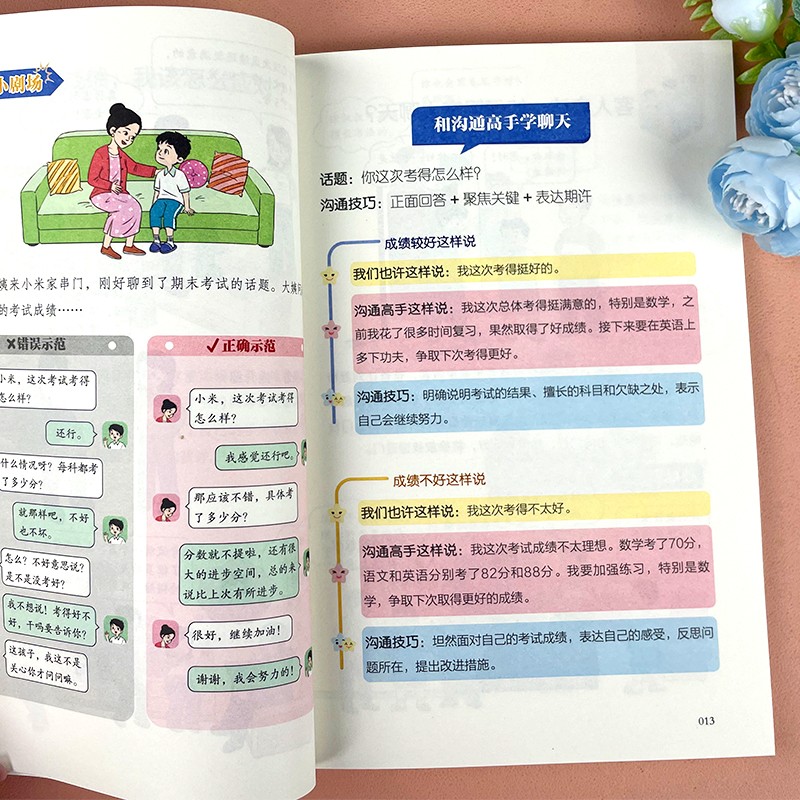 小剧场
姨来小米家串门，刚好聊到了期末考试的话题。大姨
的考试成绩……
✗错误示范
小米，这次考试考得
怎么样？
还行。
什么情况呀？每科都考
了多少分？
就那样吧，不好
也不坏。
怎么？不好意思说？
是不是没考好？
我不想说！考得好不
好，干吗要告诉你？
这孩子，我这不是
关心你才问问嘛。
✓正确示范
小米，这次考试考得
怎么样？
我感觉还行吧。
那应该不错，具体考
了多少分？
分数就不提啦，还有很
大的进步空间，总的来
说比上次有所进步。
很好，继续加油！
谢谢，我会努力的！
和沟通高手学聊天
话题：你这次考得怎么样？
沟通技巧：正面回答 + 聚焦关键 + 表达期许
成绩较好这样说
我们也许这样说：我这次考得挺好的。
沟通高手这样说：我这次总体考得挺满意的，特别是数学，之
前我花了很多时间复习，果然取得了好成绩。接下来要在英语上
多下功夫，争取下次考得更好。
沟通技巧：明确说明考试的结果、擅长的科目和欠缺之处，表示
自己会继续努力。
成绩不好这样说
我们也许这样说：我这次考得不太好。
沟通高手这样说：我这次考试成绩不太理想。数学考了70分，
语文和英语分别考了82分和88分。我要加强练习，特别是数
学，争取下次取得更好的成绩。
沟通技巧：坦然面对自己的考试成绩，表达自己的感受，反思问
题所在，提出改进措施。
013